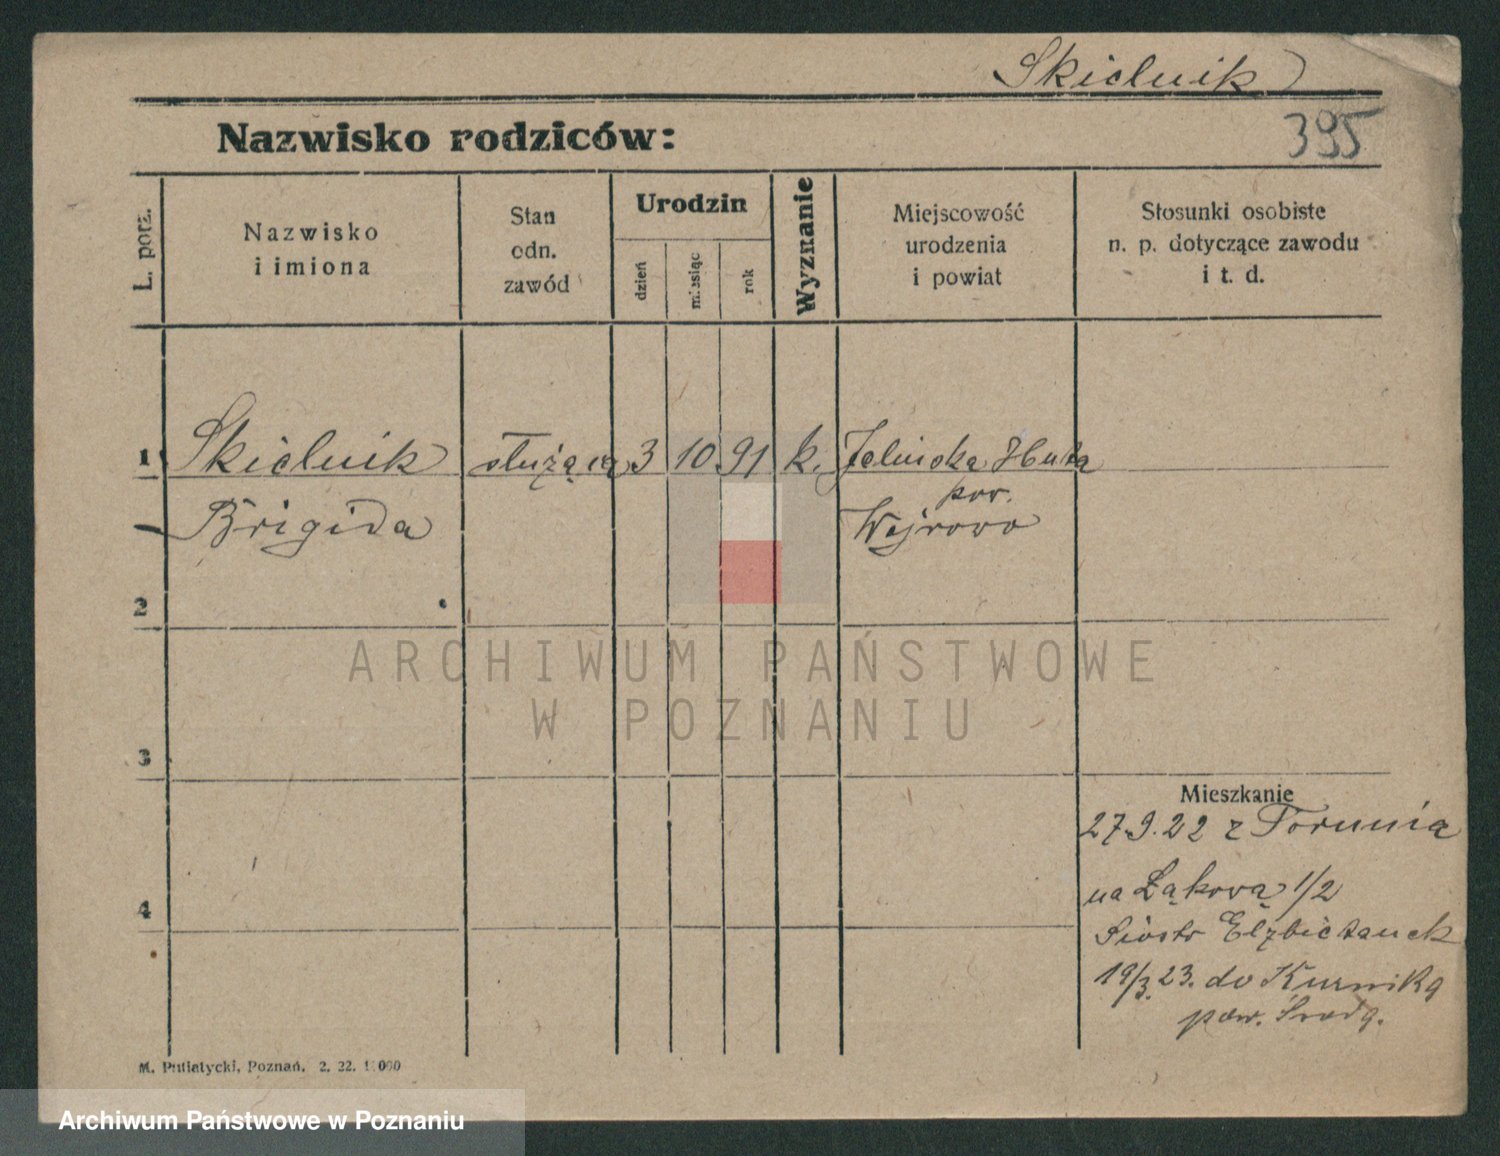 Skielnik
395
Nazwisko rodziców:
L. porz.
Nazwisko
i imiona
Stan
odn.
zawód
Urodzin
dzień
miesiąc
rok
Wyznanie
Miejscowość
urodzenia
i powiat
Stosunki osobiste
n. p. dotyczące zawodu
i t. d.
1 Skielnik służąca 3 10 91 k. Jelińska Huta
pow.
Brigida Wejrowo
2
ARCHIWUM PAŃSTWOWE
W POZNANIU
3
Mieszkanie
27.9.22 z Torunia
na Łąkową 1/2
Siostr Elżbietanek
4
19/3.23. do Kurnika
pow. Środa.
M. Putiatycki, Poznań. 2. 22.
Archiwum Państwowe w Poznaniu